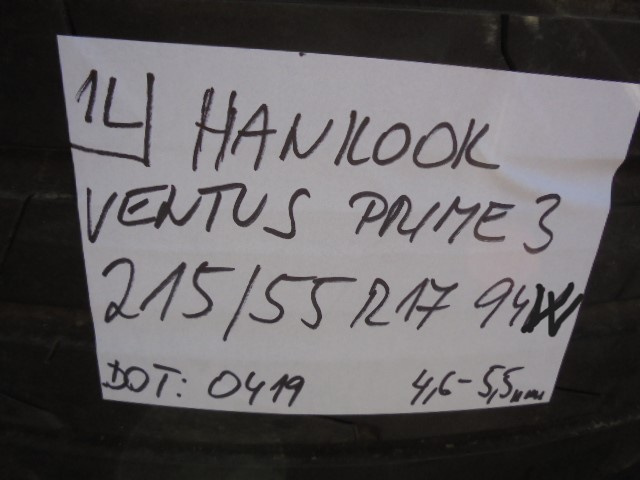 1L HANKOOK
VENTUS PRIME 3
215/55 R17 94W
DOT: 0419 4,6-5,5mm